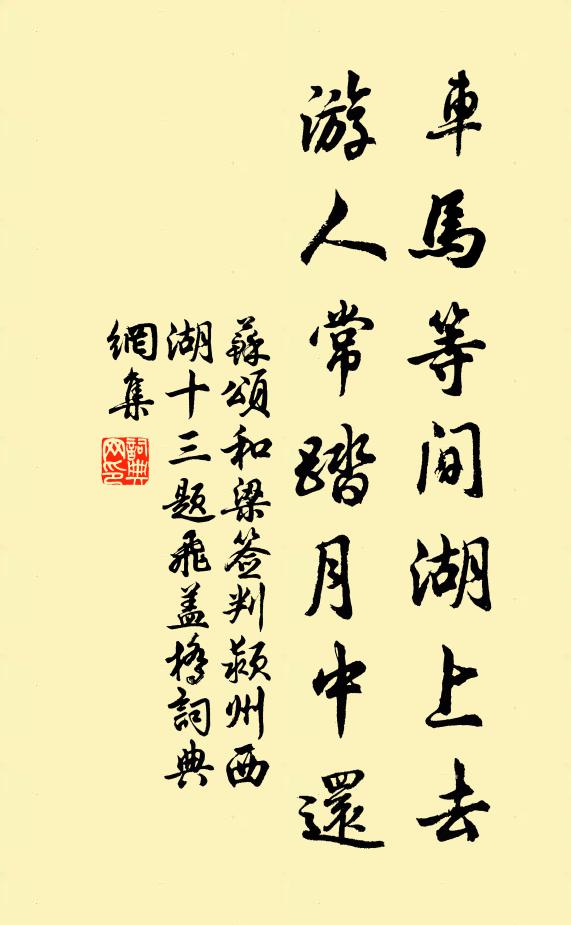 車馬等閒湖上去
游人常踏月中還
蘇頌和梁签判颍州西
湖十三题飛盖橋詞典
網集
詞典網印